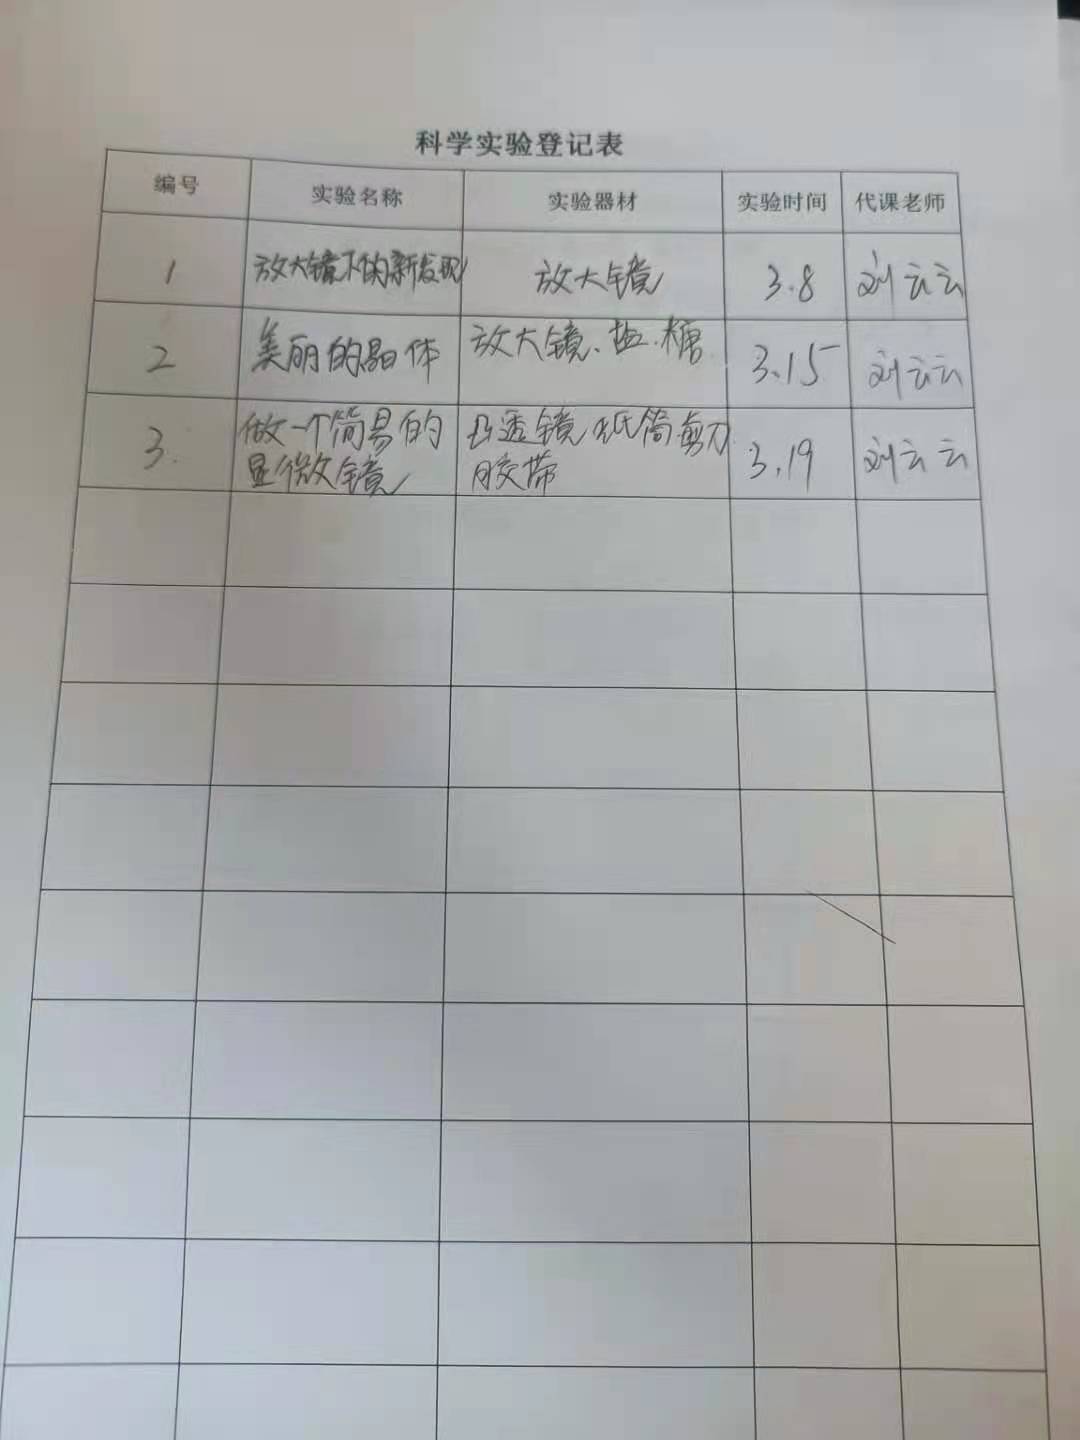 科学实验登记表
编号 实验名称 实验器材 实验时间 代课老师
1 放大镜下的新发现 放大镜 3.8 刘云云
2 美丽的晶体 放大镜、盐.糖 3.15 刘云云
3. 做一个简易的 凸透镜 纸筒剪刀 3.19 刘云云
显微镜 胶带